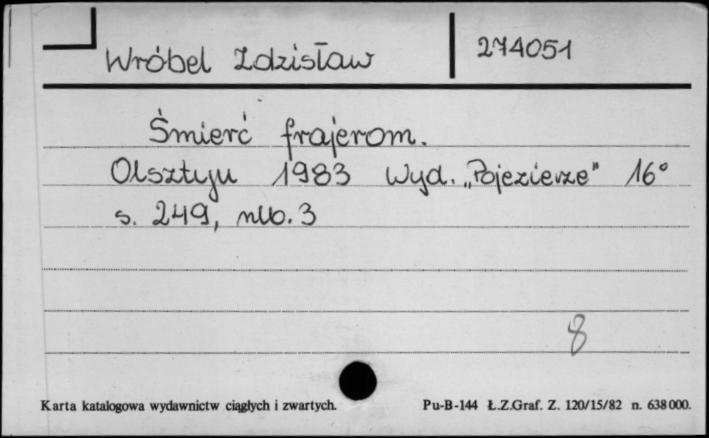 Wróbel Zdzisław 274051
Śmierć frajerom.
Olsztyn 1983 Wyd. „Pojezierze" 16°
s. 249, nlb. 3
8
Karta katalogowa wydawnictw ciągłych i zwartych. Pu-B-144 Ł.Z.Graf. Z. 120/15/82 n. 638000.